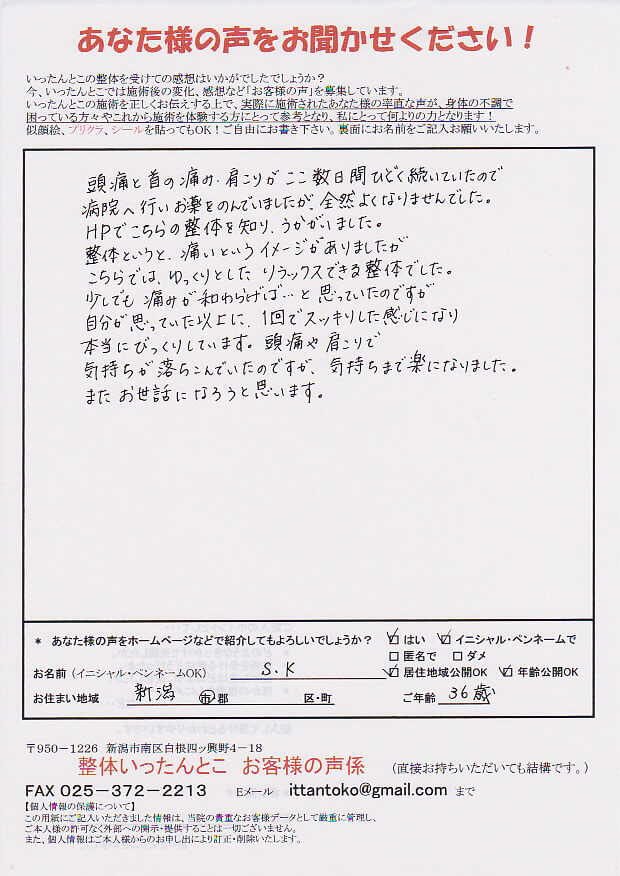 あなた様の声をお聞かせください！
いったんとこの整体を受けての感想はいかがでしたでしょうか？
今、いったんとこでは施術後の変化、感想など「お客様の声」を募集しています。
いったんとこの施術を正しくお伝えする上で、実際に施術されたあなた様の率直な声が、身体の不調で
困っている方々やこれから施術を体験する方にとって参考となり、私にとって何よりの力となります！
似顔絵、プリクラ、シールを貼ってもOK！ご自由にお書き下さい。裏面にお名前をご記入お願いいたします。
頭痛と首の痛み・肩こりがここ数日間ひどく続いていたので
病院へ行いお薬をのんでいましたが、全然よくなりませんでした。
HPでこちらの整体を知り、うかがいました。
整体というと、痛いというイメージがありましたが
こちらでは、ゆっくりとした リラックスできる整体でした。
少しでも 痛みが和わらげば…と思っていたのですが
自分が思っていた以上に、1回でスッキリした感じになり
本当にびっくりしています。頭痛や肩こりで
気持ちが落ちこんでいたのですが、気持ちまで楽になりました。
またお世話になろうと思います。
* あなた様の声をホームページなどで紹介してもよろしいでしょうか？ ☑はい ☑イニシャル・ペンネームで
□匿名で □ダメ
お名前（イニシャル・ペンネームOK） S.K ☑居住地域公開OK ☑年齢公開OK
お住まい地域 新潟 市郡 区・町 ご年齢 36歳
〒950－1226 新潟市南区白根四ッ興野4－18
整体いったんとこ お客様の声係 （直接お持ちいただいても結構です。）
FAX 025－372－2213 Eメール ittantoko@gmail.com まで
【個人情報の保護について】
この用紙にご記入いただきました情報は、当院の貴重なお客様データとして厳重に管理し、
ご本人様の許可なく外部への開示・提供することは一切ございません。
また、個人情報はご本人様からのお申し出により訂正・削除いたします。